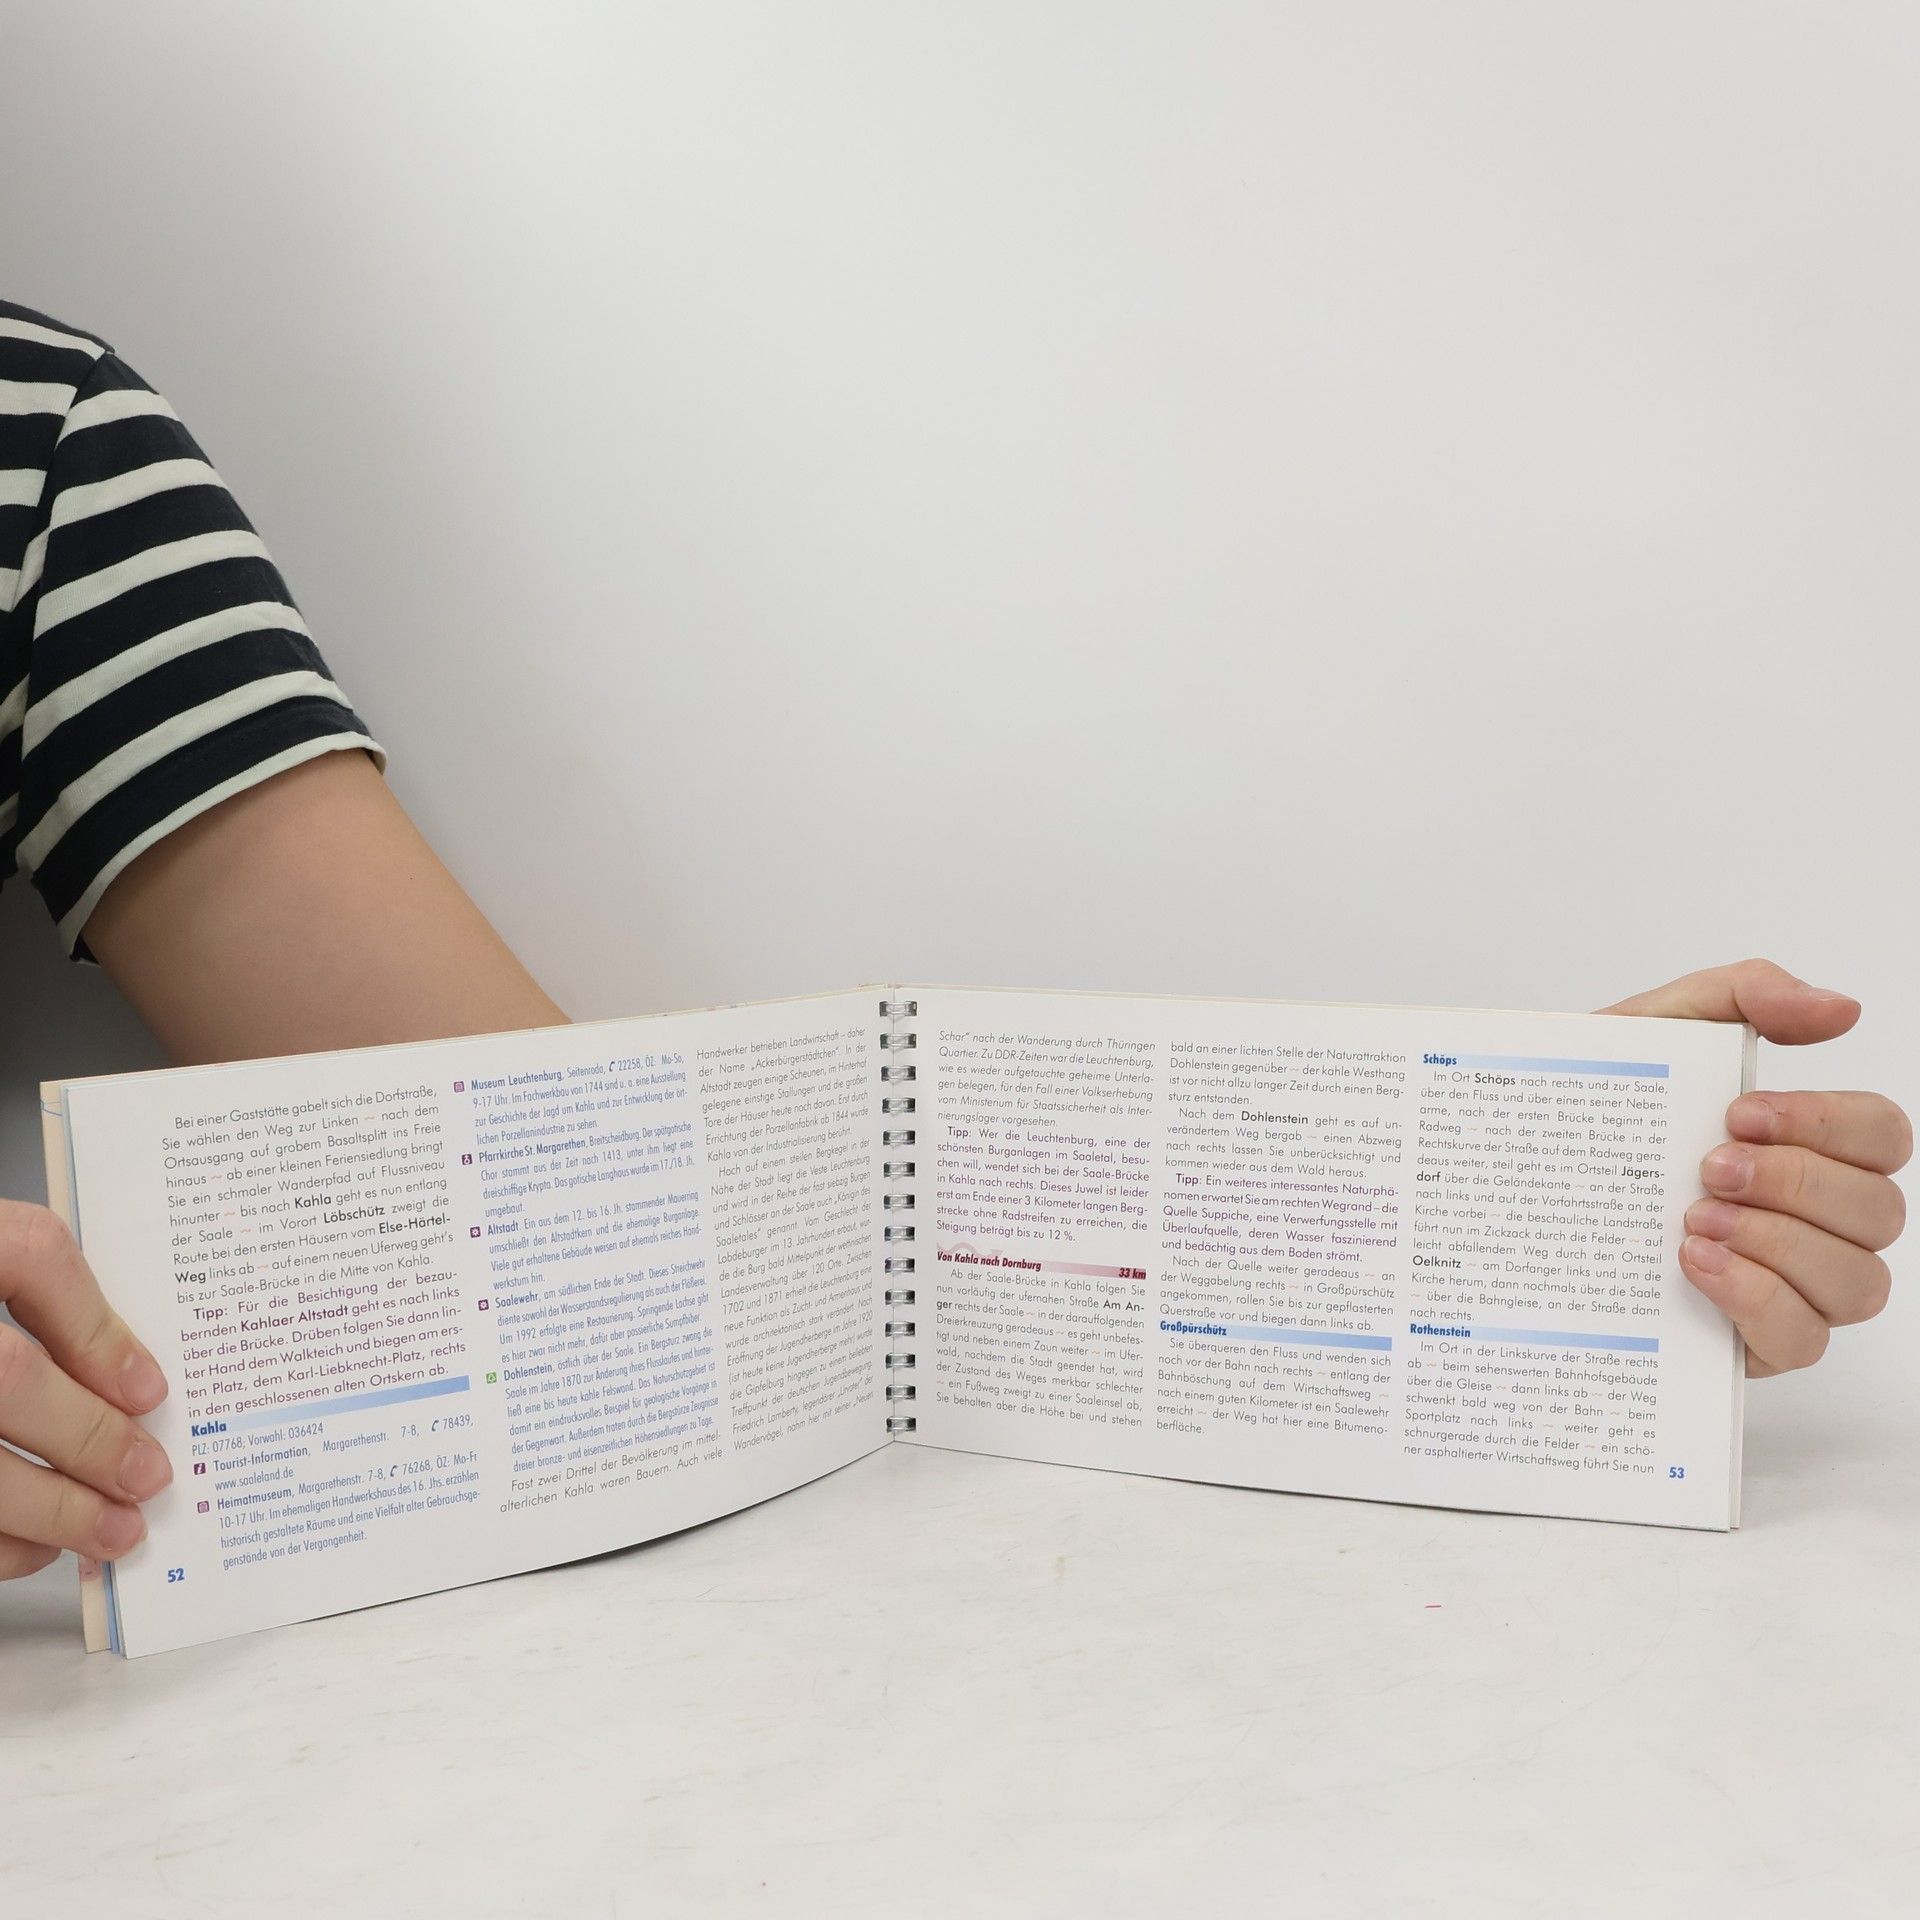 Bei einer Gaststätte gabelt sich die Dorfstraße,
Sie wählen den Weg zur Linken ~ nach dem
Ortsausgang auf grobem Basaltsplitt ins Freie
hinaus ~ ab einer kleinen Feriensiedlung bringt
Sie ein schmaler Wanderpfad auf Flussniveau
hinunter ~ bis nach Kahla geht es nun entlang
der Saale ~ im Vorort Löbschütz zweigt die
Route bei den ersten Häusern vom Else-Härtel-
Weg links ab ~ auf einem neuen Uferweg geht's
bis zur Saale-Brücke in die Mitte von Kahla.
Tipp: Für die Besichtigung der bezau-
bernden Kahlaer Altstadt geht es nach links
über die Brücke. Drüben folgen Sie dann lin-
ker Hand dem Walkteich und biegen am ers-
ten Platz, dem Karl-Liebknecht-Platz, rechts
in den geschlossenen alten Ortskern ab.
Kahla
PLZ: 07768; Vorwahl: 036424
Tourist-Information, Margarethenstr. 7-8, ✆ 78439,
www.saaleland.de
Heimatmuseum, Margarethenstr. 7-8, ✆ 76268, ÖZ: Mo-Fr
10-17 Uhr. Im ehemaligen Handwerkshaus des 16. Jhs. erzählen
historisch gestaltete Räume und eine Vielfalt alter Gebrauchsge-
genstände von der Vergangenheit.
52
Museum Leuchtenburg, Seitenroda, ✆ 22258, ÖZ: Mo-So,
9-17 Uhr. Im Fachwerkbau von 1744 sind u. a. eine Ausstellung
zur Geschichte der Jagd um Kahla und zur Entwicklung der ört-
lichen Porzellanindustrie zu sehen.
Pfarrkirche St. Margarethen, Breitscheidburg. Der spätgotische
Chor stammt aus der Zeit nach 1413, unter ihm liegt eine
dreischiffige Krypta. Das gotische Langhaus wurde im 17./18. Jh.
umgebaut.
Altstadt. Ein aus dem 12. bis 16. Jh. stammender Mauerring
umschließt den Altstadtkern und die ehemalige Burganlage.
Viele gut erhaltene Gebäude weisen auf ehemals reiches Hand-
werkstum hin.
Saalewehr, am südlichen Ende der Stadt. Dieses Streichwehr
diente sowohl der Wasserstandsregulierung als auch der Flößerei.
Um 1992 erfolgte eine Restaurierung. Springende Lachse gibt
es hier zwar nicht mehr, dafür aber passierliche Sumpfbiber.
Dohlenstein, östlich über der Saale. Ein Bergsturz zwang die
Saale im Jahre 1870 zur Änderung ihres Flusslaufes und hinter-
ließ eine bis heute kahle Felswand. Das Naturschutzgebiet ist
damit ein eindrucksvolles Beispiel für geologische Vorgänge in
der Gegenwart. Außerdem traten durch die Bergstürze Zeugnisse
dreier bronze- und eisenzeitlichen Höhensiedlungen zu Tage.
Fast zwei Drittel der Bevölkerung im mittel-
alterlichen Kahla waren Bauern. Auch viele
Handwerker betrieben Landwirtschaft – daher
der Name „Ackerbürgerstädtchen“. In der
Altstadt zeugen einige Scheunen, im Hinterhof
gelegene einstige Stallungen und die großen
Tore der Häuser heute noch davon. Erst durch
Errichtung der Porzellanfabrik ab 1844 wurde
Kahla von der Industrialisierung berührt.
Hoch auf einem steilen Bergkegel in der
Nähe der Stadt liegt die Veste Leuchtenburg
und wird in der Reihe der fast siebzig Burgen
und Schlösser an der Saale auch „Königin des
Saaletales“ genannt. Vom Geschlecht der
Lobdeburger im 13. Jahrhundert erbaut, wur-
de die Burg bald Mittelpunkt der wettinischen
Landesverwaltung über 120 Orte. Zwischen
1702 und 1871 erhielt die Leuchtenburg eine
neue Funktion als Zucht- und Armenhaus und
wurde architektonisch stark verändert. Nach
Eröffnung der Jugendherberge im Jahre 1920
(ist heute keine Jugendherberge mehr) wurde
die Gipfelburg hingegen zu einem beliebten
Treffpunkt der deutschen Jugendbewegung.
Friedrich Lamberty, legendärer „Urvater“ der
Wandervögel, nahm hier mit seiner „Neuen
Schar“ nach der Wanderung durch Thüringen
Quartier. Zu DDR-Zeiten war die Leuchtenburg,
wie es wieder aufgetauchte geheime Unterla-
gen belegen, für den Fall einer Volkserhebung
vom Ministerium für Staatssicherheit als Inter-
nierungslager vorgesehen.
Tipp: Wer die Leuchtenburg, eine der
schönsten Burganlagen im Saaletal, besu-
chen will, wendet sich bei der Saale-Brücke
in Kahla nach rechts. Dieses Juwel ist leider
erst am Ende einer 3 Kilometer langen Berg-
strecke ohne Radstreifen zu erreichen, die
Steigung beträgt bis zu 12 %.
Von Kahla nach Dornburg 33 km
Ab der Saale-Brücke in Kahla folgen Sie
nun vorläufig der ufernahen Straße Am An-
ger rechts der Saale ~ in der darauffolgenden
Dreierkreuzung geradeaus ~ es geht unbefes-
tigt und neben einem Zaun weiter ~ im Ufer-
wald, nachdem die Stadt geendet hat, wird
der Zustand des Weges merkbar schlechter
~ ein Fußweg zweigt zu einer Saaleinsel ab,
Sie behalten aber die Höhe bei und stehen
bald an einer lichten Stelle der Naturattraktion
Dohlenstein gegenüber ~ der kahle Westhang
ist vor nicht allzu langer Zeit durch einen Berg-
sturz entstanden.
Nach dem Dohlenstein geht es auf un-
verändertem Weg bergab ~ einen Abzweig
nach rechts lassen Sie unberücksichtigt und
kommen wieder aus dem Wald heraus.
Tipp: Ein weiteres interessantes Naturphä-
nomen erwartet Sie am rechten Wegrand – die
Quelle Suppiche, eine Verwerfungsstelle mit
Überlaufquelle, deren Wasser faszinierend
und bedächtig aus dem Boden strömt.
Nach der Quelle weiter geradeaus ~ an
der Weggabelung rechts ~ in Großpürschütz
angekommen, rollen Sie bis zur gepflasterten
Querstraße vor und biegen dann links ab.
Großpürschütz
Sie überqueren den Fluss und wenden sich
noch vor der Bahn nach rechts ~ entlang der
Bahnböschung auf dem Wirtschaftsweg ~
nach einem guten Kilometer ist ein Saalewehr
erreicht ~ der Weg hat hier eine Bitumeno-
berfläche.
Schöps
Im Ort Schöps nach rechts und zur Saale,
über den Fluss und über einen seiner Neben-
arme, nach der ersten Brücke beginnt ein
Radweg ~ nach der zweiten Brücke in der
Rechtskurve der Straße auf dem Radweg gera-
deaus weiter, steil geht es im Ortsteil Jägers-
dorf über die Geländekante ~ an der Straße
nach links und auf der Vorfahrtsstraße an der
Kirche vorbei ~ die beschauliche Landstraße
führt nun im Zickzack durch die Felder ~ auf
leicht abfallendem Weg durch den Ortsteil
Oelknitz ~ am Dorfanger links und um die
Kirche herum, dann nochmals über die Saale
~ über die Bahngleise, an der Straße dann
nach rechts.
Rothenstein
Im Ort in der Linkskurve der Straße rechts
ab ~ beim sehenswerten Bahnhofsgebäude
über die Gleise ~ dann links ab ~ der Weg
schwenkt bald weg von der Bahn ~ beim
Sportplatz nach links ~ weiter geht es
schnurgerade durch die Felder ~ ein schö-
ner asphaltierter Wirtschaftsweg führt Sie nun
53